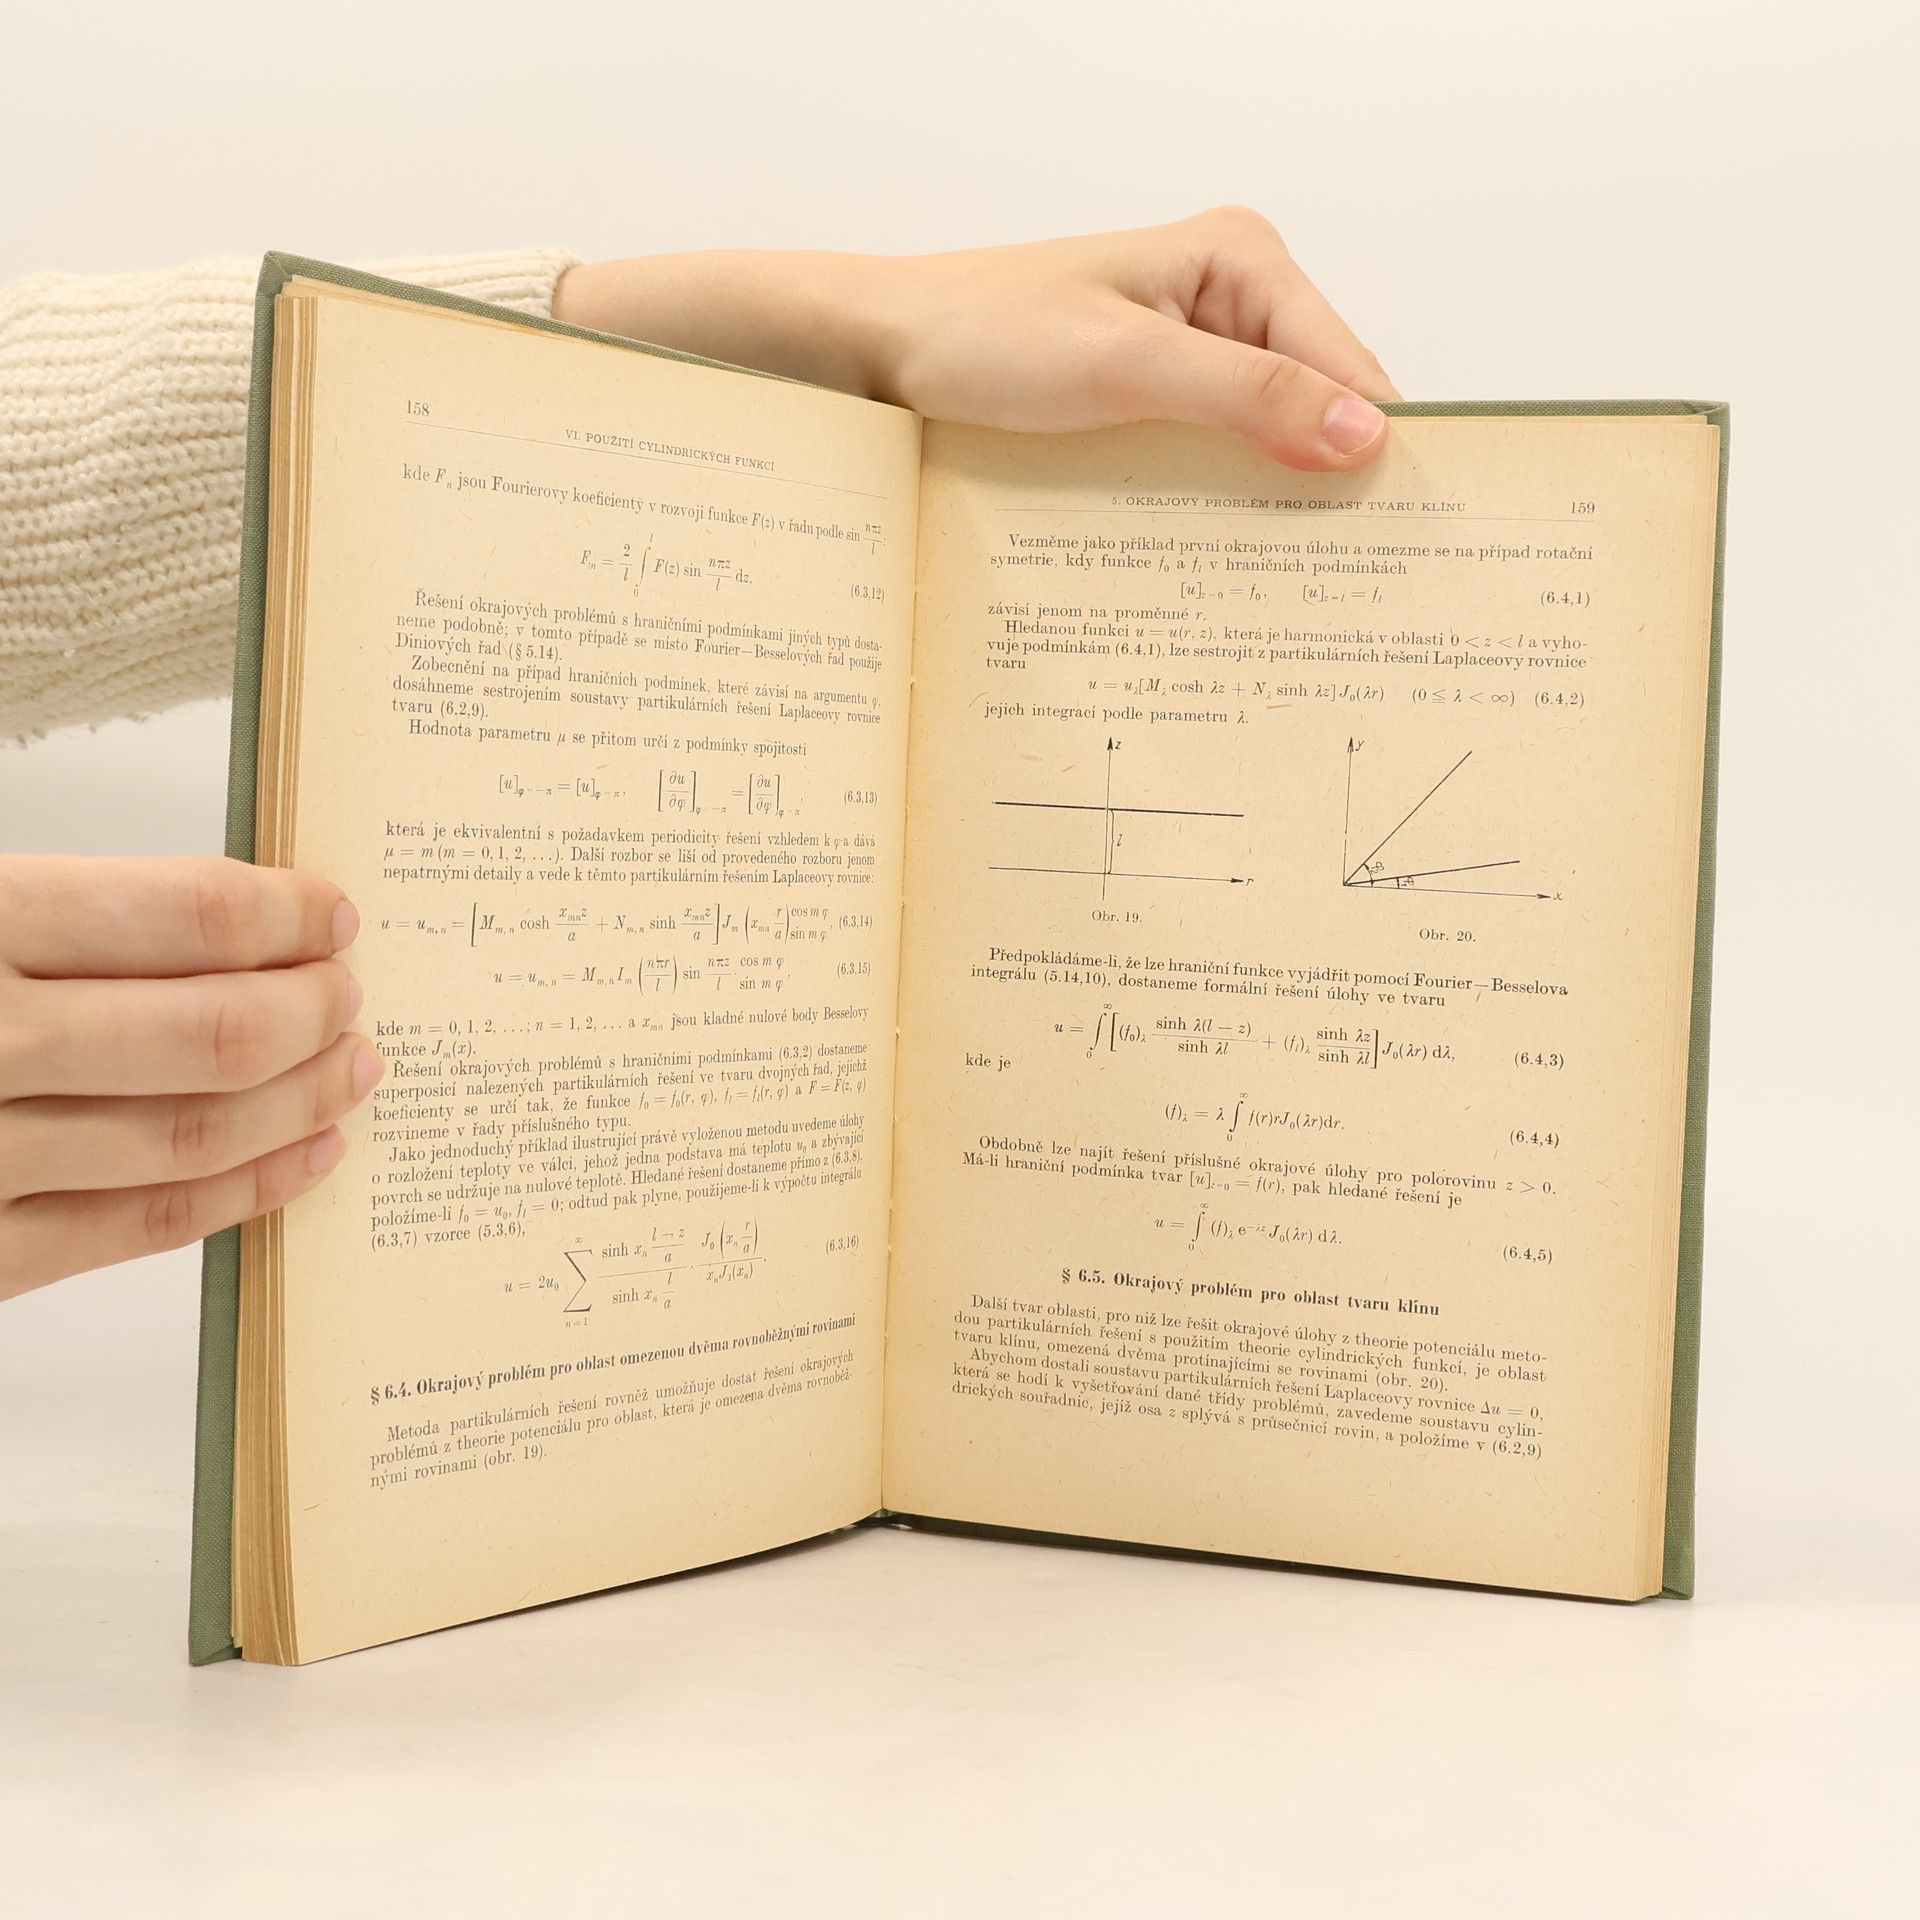 158
VI. POUŽITÍ CYLINDRICKÝCH FUNKCÍ
kde Fₙ jsou Fourierovy koeficienty v rozvoji funkce F(z) v řadu podle sin nπz/l:
Fₙ = 2/l ∫₀ˡ F(z) sin nπz/l dz. (6.3,12)
Řešení okrajových problémů s hraničními podmínkami jiných typů dosta-
neme podobně; v tomto případě se místo Fourier—Besselových řad použije
Diniových řad (§ 5.14).
Zobecnění na případ hraničních podmínek, které závisí na argumentu φ,
dosáhneme sestrojením soustavy partikulárních řešení Laplaceovy rovnice
tvaru (6.2,9).
Hodnota parametru μ se přitom určí z podmínky spojitosti
[u]φ=−π = [u]φ=π, [∂u/∂φ]φ=−π = [∂u/∂φ]φ=π, (6.3,13)
která je ekvivalentní s požadavkem periodicity řešení vzhledem k φ a dává
μ = m (m = 0, 1, 2, ...). Další rozbor se liší od provedeného rozboru jenom
nepatrnými detaily a vede k těmto partikulárním řešením Laplaceovy rovnice:
u = uₘ,ₙ = [Mₘ,ₙ cosh xₘₙz/a + Nₘ,ₙ sinh xₘₙz/a] Jₘ (xₘₙ r/a) cos mφ sin mφ, (6.3,14)
u = uₘ,ₙ = Mₘ,ₙ Iₘ (nπr/l) sin nπz/l · cos mφ sin mφ, (6.3,15)
kde m = 0, 1, 2, ...; n = 1, 2, ... a xₘₙ jsou kladné nulové body Besselovy
funkce Jₘ(x).
Řešení okrajových problémů s hraničními podmínkami (6.3,2) dostaneme
superposicí nalezených partikulárních řešení ve tvaru dvojných řad, jejichž
koeficienty se určí tak, že funkce f₀ = f₀(r, φ), fₗ = fₗ(r, φ) a F = F(z, φ)
rozvineme v řady příslušného typu.
Jako jednoduchý příklad ilustrující právě vyloženou metodu uvedeme úlohy
o rozložení teploty ve válci, jehož jedna podstava má teplotu u₀ a zbývající
povrch se udržuje na nulové teplotě. Hledané řešení dostaneme přímo z (6.3,8),
položíme-li f₀ = u₀, fₗ = 0; odtud pak plyne, použijeme-li k výpočtu integrálu
(6.3,7) vzorce (5.3,6),
u = 2u₀ ∑ₙ₌₁^∞ (sinh xₙ (l − z)/a)/(sinh xₙ l/a) · J₀(xₙ r/a)/(xₙJ₁(xₙ)). (6.3,16)
§ 6.4. Okrajový problém pro oblast omezenou dvěma rovnoběžnými rovinami
Metoda partikulárních řešení rovněž umožňuje dostat řešení okrajových
problémů z theorie potenciálu pro oblast, která je omezena dvěma rovnoběž-
nými rovinami (obr. 19).
5. OKRAJOVÝ PROBLÉM PRO OBLAST TVARU KLÍNU 159
Vezměme jako příklad první okrajovou úlohu a omezme se na případ rotační
symetrie, kdy funkce f₀ a fₗ v hraničních podmínkách
[u]z=0 = f₀, [u]z=l = fₗ (6.4,1)
závisí jenom na proměnné r.
Hledanou funkci u = u(r, z), která je harmonická v oblasti 0 < z < l a vyho-
vuje podmínkám (6.4,1), lze sestrojit z partikulárních řešení Laplaceovy rovnice
tvaru
u = u_λ[M_λ cosh λz + N_λ sinh λz] J₀(λr) (0 ≦ λ < ∞) (6.4,2)
jejich integrací podle parametru λ.
z
l
r
Obr. 19.
y
x
Obr. 20.
Předpokládáme-li, že lze hraniční funkce vyjádřit pomocí Fourier—Besselova
integrálu (5.14,10), dostaneme formální řešení úlohy ve tvaru
u = ∫₀^∞ [(f₀)_λ sinh λ(l − z)/sinh λl + (fₗ)_λ sinh λz/sinh λl] J₀(λr) dλ, (6.4,3)
kde je
(f)_λ = λ ∫₀^∞ f(r)rJ₀(λr)dr. (6.4,4)
Obdobně lze najít řešení příslušné okrajové úlohy pro polorovinu z > 0.
Má-li hraniční podmínka tvar [u]z=0 = f(r), pak hledané řešení je
u = ∫₀^∞ (f)_λ e^−λz J₀(λr) dλ. (6.4,5)
§ 6.5. Okrajový problém pro oblast tvaru klínu
Další tvar oblasti, pro niž lze řešit okrajové úlohy z theorie potenciálu meto-
dou partikulárních řešení s použitím theorie cylindrických funkcí, je oblast
tvaru klínu, omezená dvěma protínajícími se rovinami (obr. 20).
Abychom dostali soustavu partikulárních řešení Laplaceovy rovnice Δu = 0,
která se hodí k vyšetřování dané třídy problémů, zavedeme soustavu cylin-
drických souřadnic, jejíž osa z splývá s průsečnicí rovin, a položíme v (6.2,9)